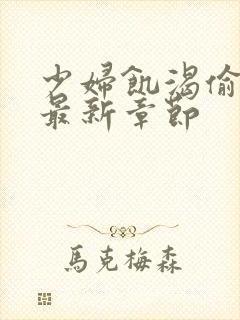 少婦飢渴偷
最新章節
馬克梅森